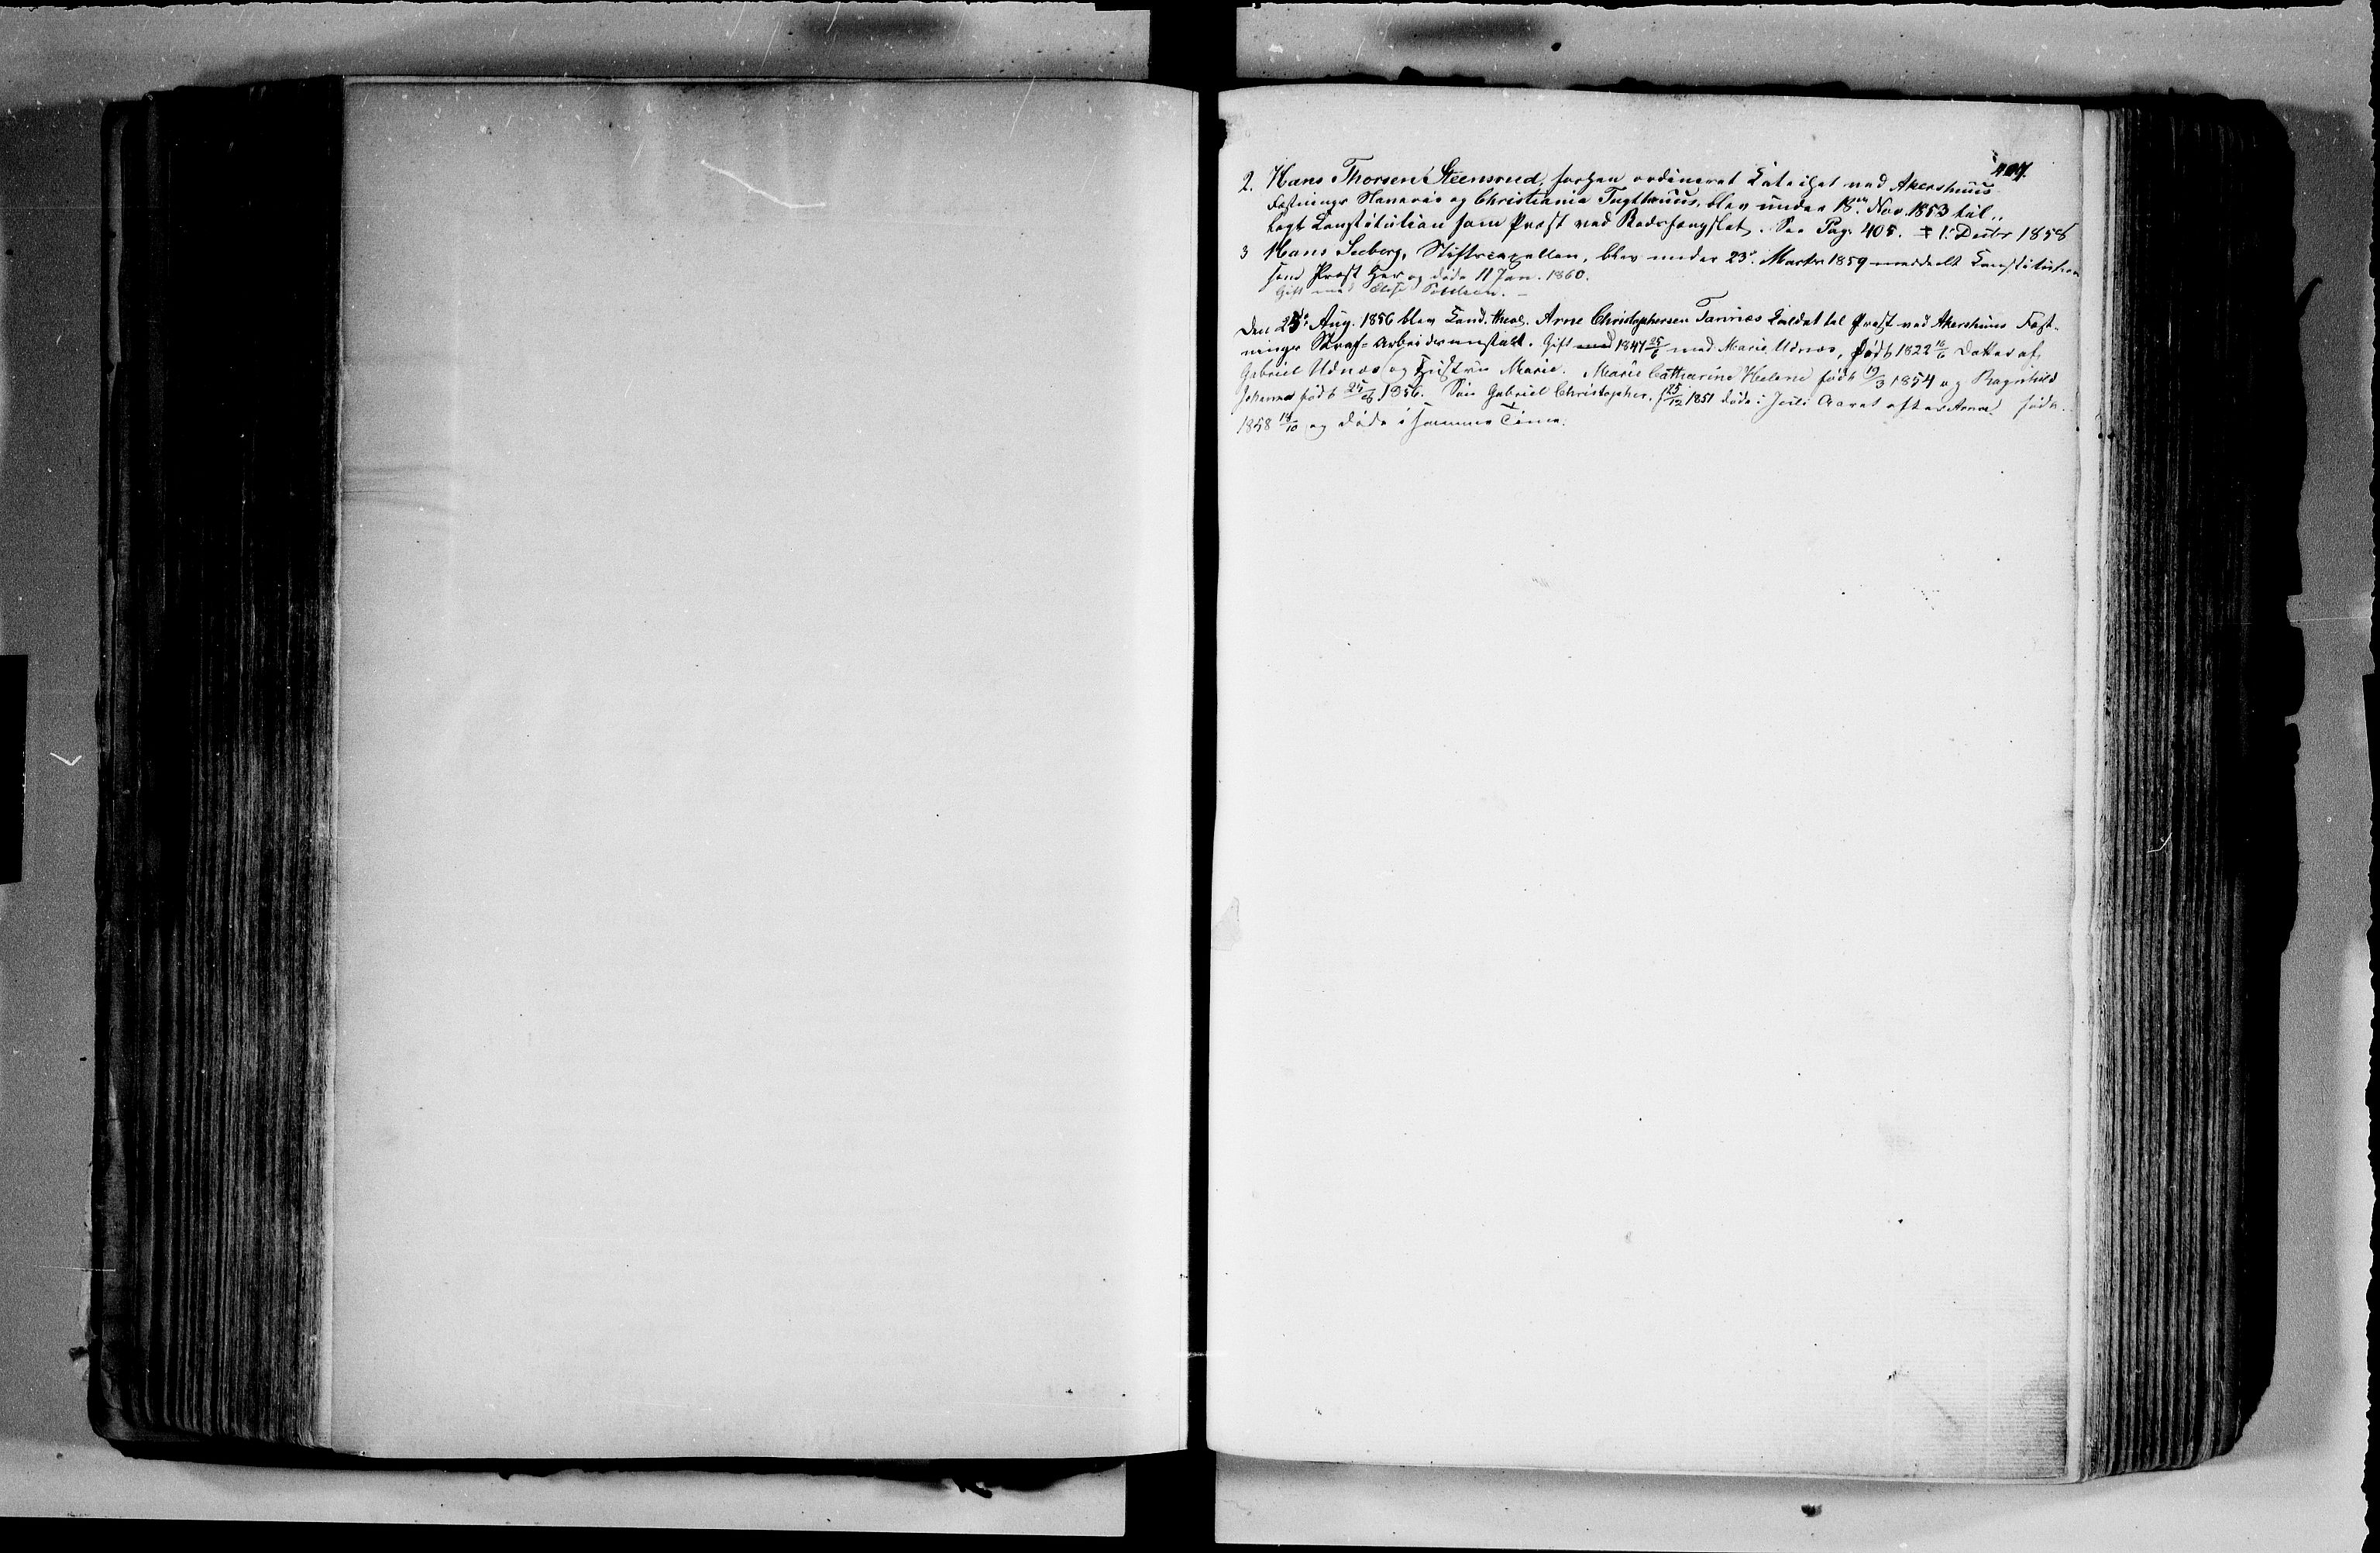 407.
2. Hans Thorsen Steensrud, forhen ordineret Catechet ved Akershuus
Fæstnings Slaverie og Christiania Tugthuus, blev under 18de Nov. 1853 til„
lagt Constitution som Præst ved Bodsfængslet. See Pag. 405. ‡ 1. Decbr 1858
3 Hans Seeberg, Stiftscapellan, blev under 23de Marts 1859 meddeelt Constitution
som Præst her og døde 11 Jan. 1860.
Gift med Elise
Den 25de Aug. 1856 blev Cand. theol. Arne Christophersen Tannæs kaldet til Præst ved Akershuus Fæst-
nings Straf-Arbeidsanstalt. Gift med 1847 25/6 med Marie Udnæs, født 1822 16/6 Datter af
Gabriel Udnæs og Hustru Marie. Marie Catharine Helene født 19/3 1854 og Ragnhild
Johanne født 25/6 1856. Søn Gabriel Christopher, f 25/12 1851 døde i Juli Aaret efter. Anna født
1858 14/10 og døde i samme Time.